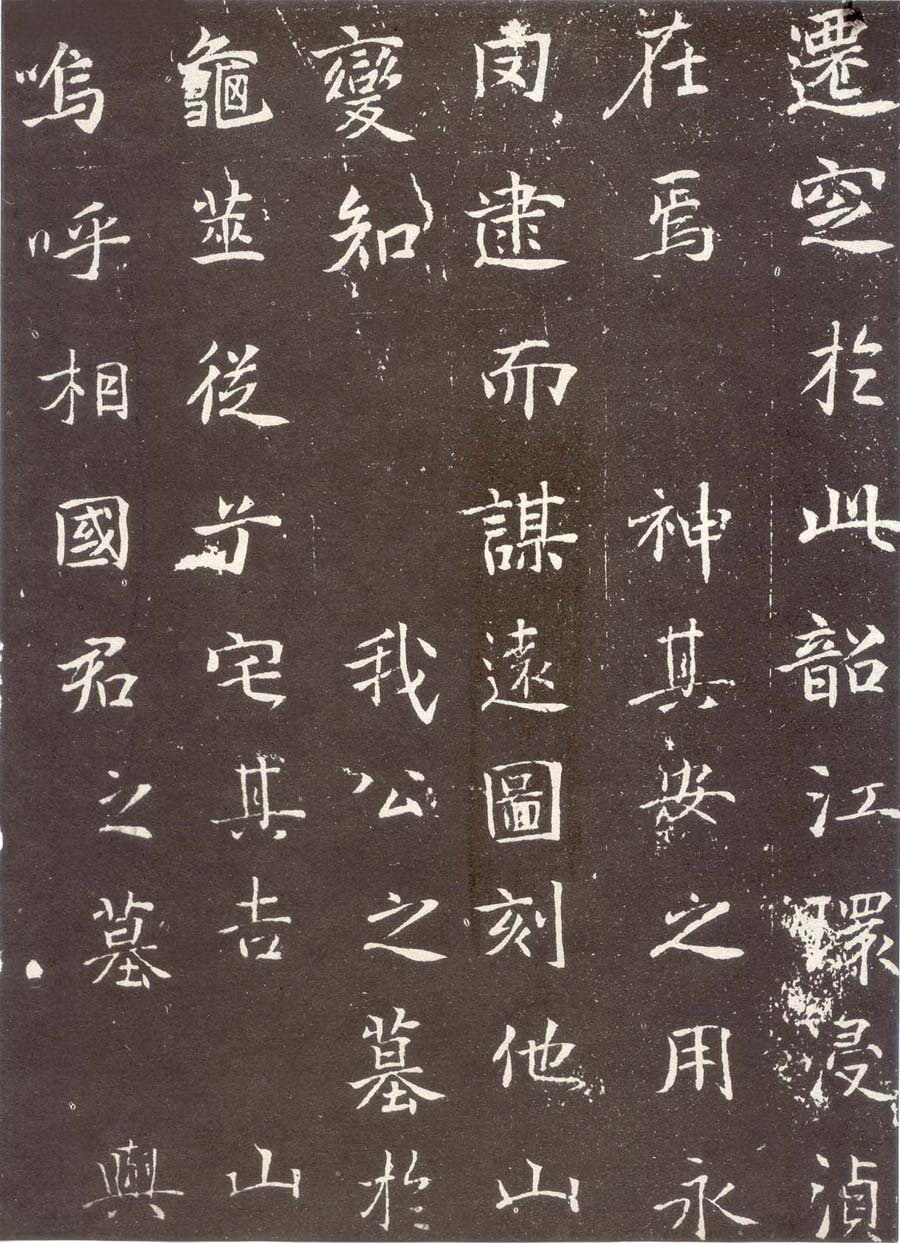 遷窆於此韶江環浸湞
在焉　神其安之用永
逮而謀遠圖刻他山
變知　我公之墓於
龜筮從兮宅其吉　山
嗚呼相國君之墓　與